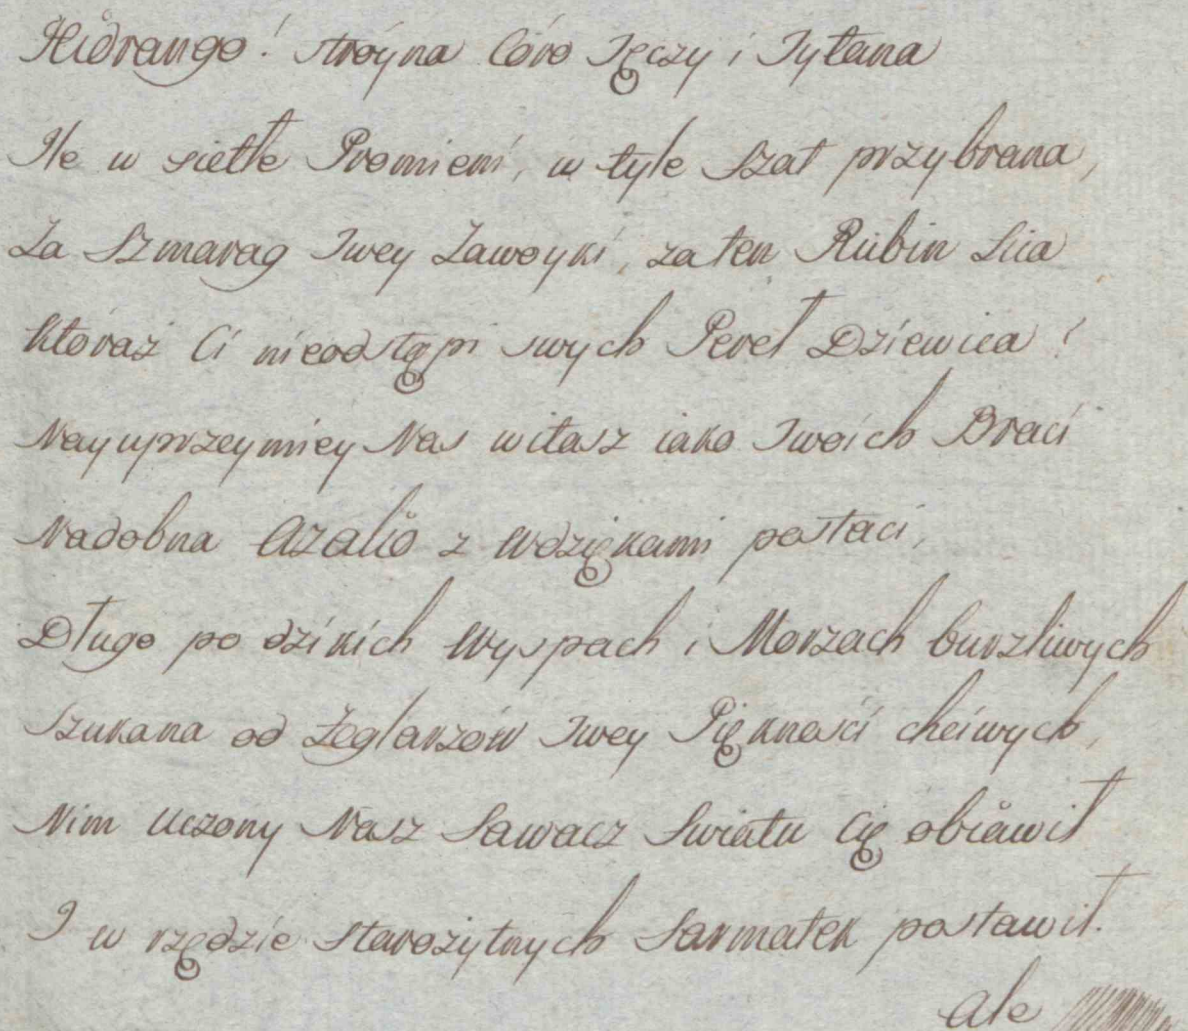 Hidrango! stroyna Córo Tęczy i Tytana
Ile w sietle Promieni, w tyle Szat przybrana,
Za Szmarag Twey Zawoyki, za ten Rubin Lica
Któraż Ci nieodstąpi swych Pereł Dziewica!
Nayuprzeymiey Nas witasz iako Twoich Braci
Nadobna Azalio z Wdziękami postaci,
Długo po dzikich Wyspach i Morzach burzliwych
Szukana od Żeglarzów Twey Piękności chciwych,
Nim Uczony Nasz Sawacz Swiatu Cię obiawił
I w rzędzie Starożytnych Sarmatek postawił.
Ale